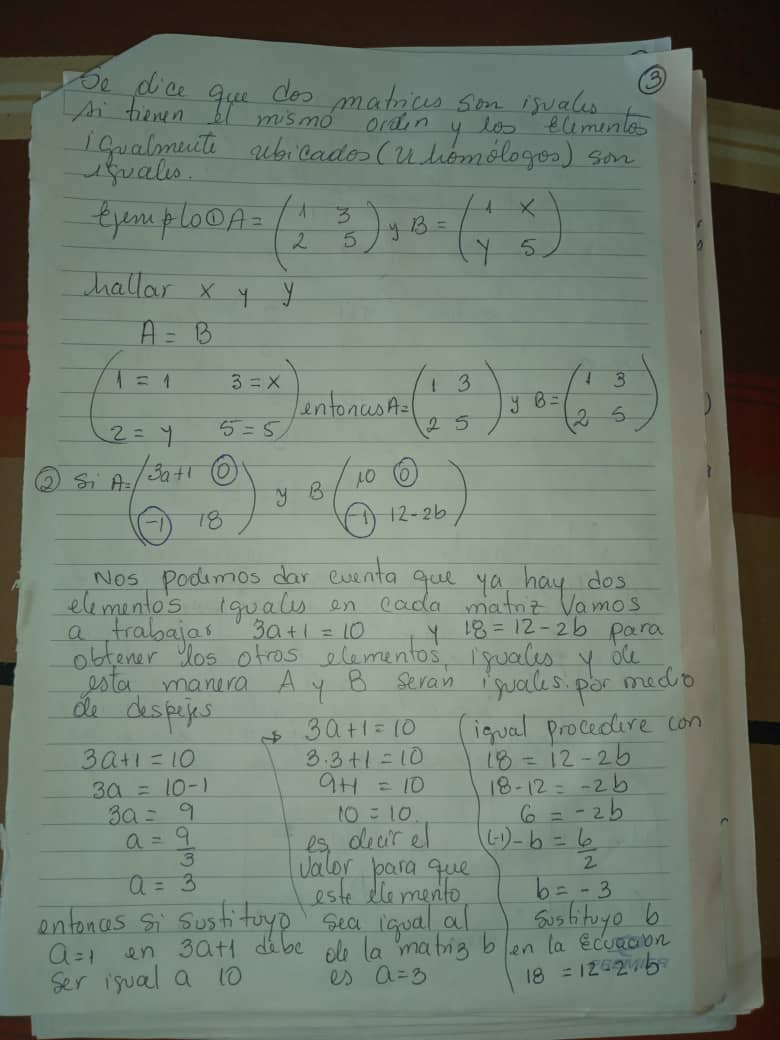 3
Se dice que dos matrices son iguales,
si tienen el mismo orden y los elementos
igualmente ubicados (u homólogos) son
iguales.
Ejemplo ① A = ( 1 3 ) y B = ( 1 x )
2 5 y 5
hallar x y y
A = B
( 1 = 1 3 = x ) entonces A = ( 1 3 ) y B = ( 1 3 )
2 = y 5 = 5 2 5 2 5
② Si A = ( 3a+1 0 ) y B ( 10 0 )
-1 18 -1 12-2b
Nos podemos dar cuenta que ya hay dos
elementos iguales en cada matriz Vamos
a trabajar 3a+1 = 10 y 18 = 12-2b para
obtener los otros elementos iguales y de
esta manera A y B serán iguales. por medio
de despejes
3a+1 = 10
3a = 10-1
3a = 9
a = 9/3
a = 3
entonces si sustituyo
a=1 en 3a+1 debe
ser igual a 10
→ 3a+1 = 10
3.3+1 = 10
9+1 = 10
10 = 10.
es decir el
valor para que
este elemento
sea igual al
de la matriz b
es a=3
igual procedere con
18 = 12-2b
18-12 = -2b
6 = -2b
(-1) -b = 6/2
b = -3
Sustituyo b
en la Ecuacion
PREMIER
18 = 12-2.b